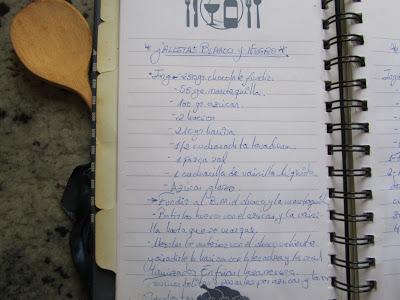 * GALLETAS BLANCO y NEGRO *
• Ing → 250gr chocolate fundir.
- 55 gr. mantequilla.
- 100 gr. azúcar.
- 2 huevos
- 210gr harina
- 1/2 cucharadita levadura
- 1 pizca sal
- 1 cucharilla de vainilla líquida
- Azúcar glass
→ Fundir al B.M. el choco y la mantequilla
- Batir los huevos con el azúcar y la vaini-
lla hasta que se
- Mezclar lo anterior con el choco
y añadirle la harina con la levadura y la sal
Enfriar
y pasarlas por azúcar